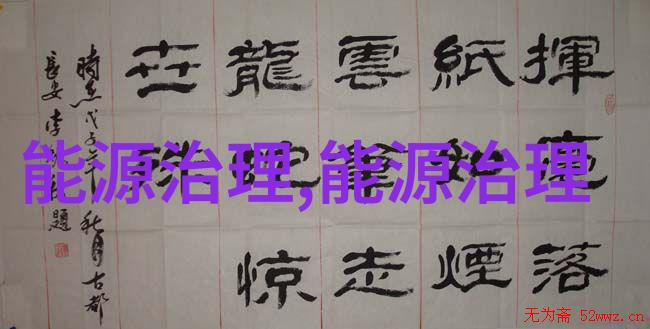 揮毫落
紙如煙
雲走
龍蛇惊
世
時在戊子年秋月古都
長安李題
能源治理,能源治理
无为斋 52wwz.cn